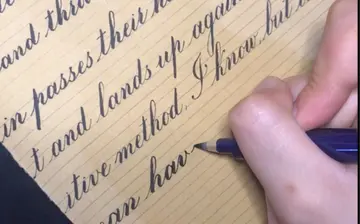 and thr
in passes their h
t and lands up again
itive method. I know, but i
can hav